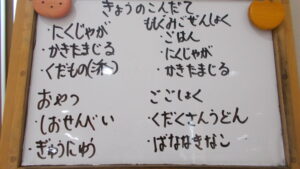 きょうのこんだて
・にくじゃが
・かきたまじる
・くだもの
おやつ
・しおせんべい
・ぎゅうにゅう
もぐみごぜんしょく
・ごはん
・にくじゃが
かきたまじる
ごごしょく
くだくさんうどん
ばななきなこ